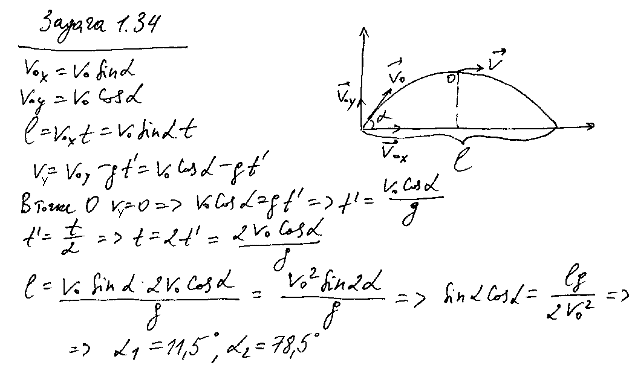 Задача 1.34
V₀ₓ = V₀ sinα
V₀y = V₀ cosα
ℓ = V₀ₓ t = V₀ sinα t
Vy = V₀y - gt' = V₀ cosα - gt'
В точке O Vy = 0 => V₀ cosα = gt' => t' = V₀ cosα / g
t' = t/2 => t = 2t' = 2V₀ cosα / g
ℓ = V₀ sinα · 2V₀ cosα / g = V₀² sin2α / g => sinα cosα = ℓg / 2V₀² =>
=> α₁ = 11,5°, α₂ = 78,5°
V₀y
V₀
O
V
α
V₀ₓ
ℓ